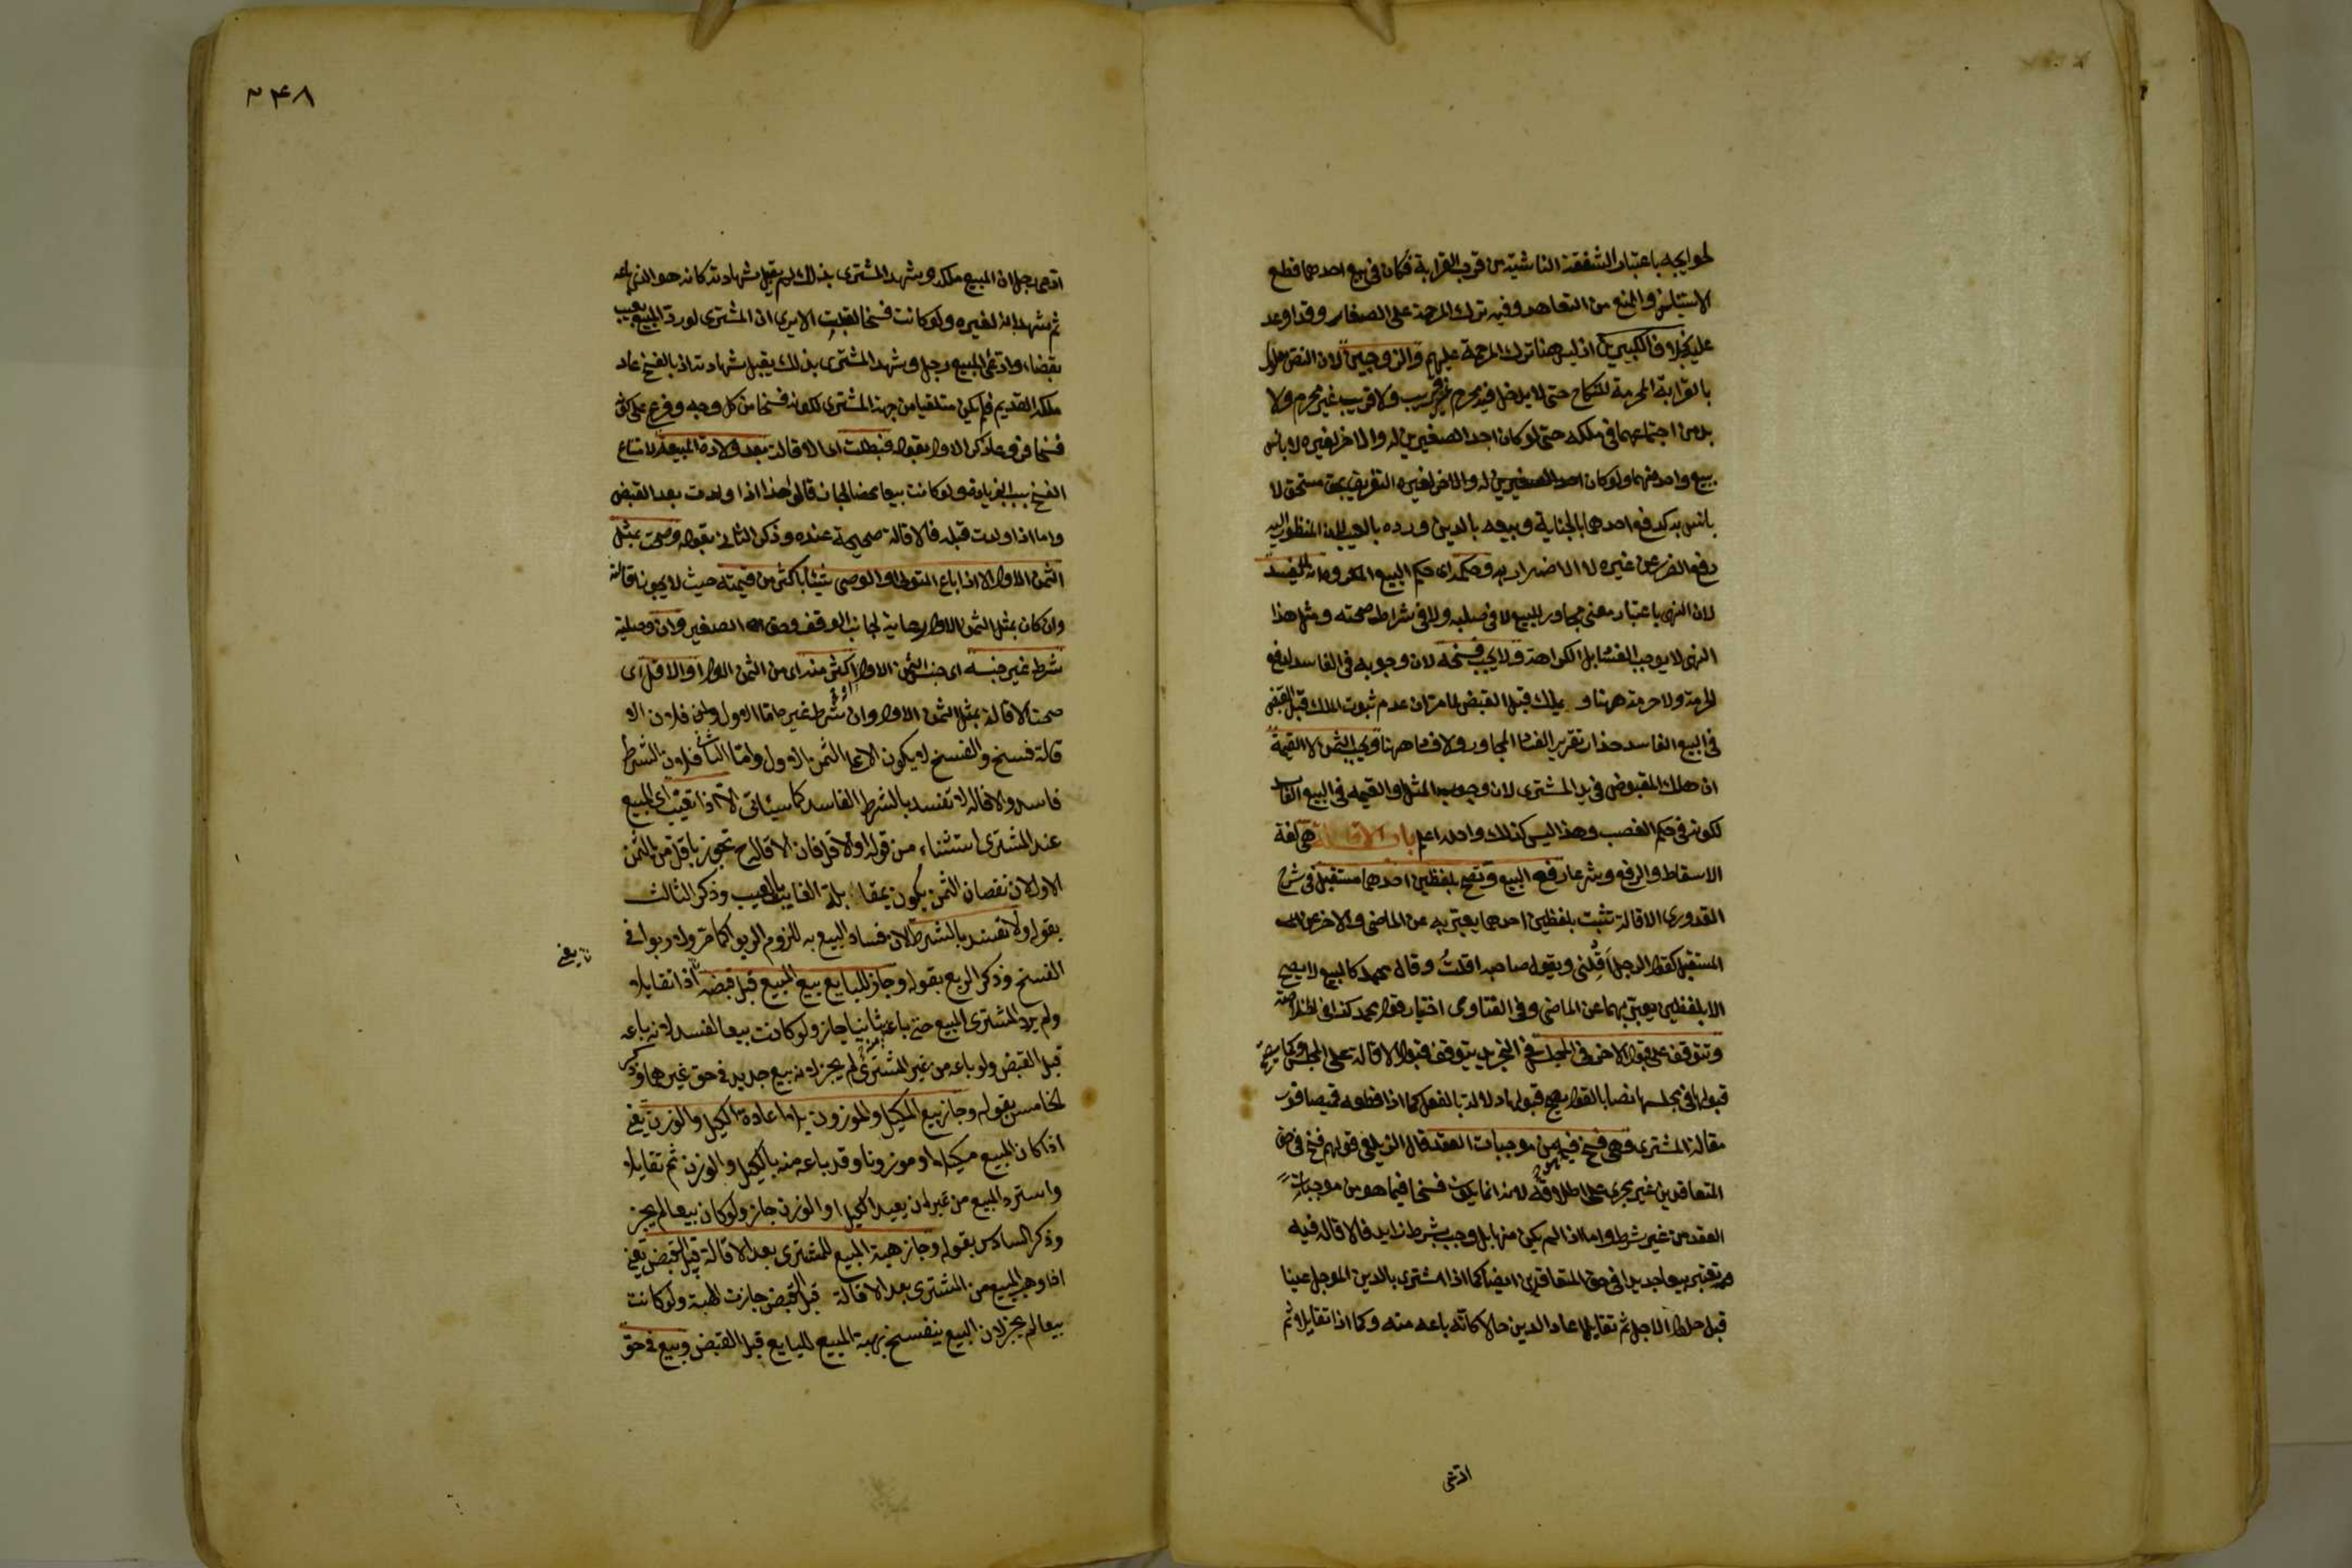 لحوايجه باعتبار الشفقة الناشية من قرب القرابة فكان في بيع احدهما قطع
الاستيناس والمنع من التعاهد وفيه ترك المرحمة على الصغار وقد اوعد
عليه بخلاف الكبيرين اذ ليس هنا ترك المرحمة عليهم والزوجين لان النص معلول
بالقرابة المحرمة للنكاح حتى لا يدخل فيه محرم غير قريب ولا قريب غير محرم ولا
بد من اجتماعهما في ملكه حتى لو كان احد الصغيرين له والاخر لغيره لا باس
ببيع واحد منهما ولو كان احد الصغيرين له والاخر لغيره التفريق بحق مستحق لا
باس به كدفع احدهما بالجناية وبيعه بالدين ورده بالعيب لان المنظور اليه
دفع الضرر عن غيره لا الاضرار به وحكمه اى حكم البيع المكروه انه لا يفسد
لان النهى باعتبار معنى مجاور للبيع لا في صلبه ولا في شرائط صحته ومثل هذا
النهى لا يوجب الفساد بل الكراهة ولا يجب فسخه لان وجوبه في الفاسد لدفع
الحرمة ولا حرمة ههنا و يملك قبل القبض لما مر ان عدم ثبوت الملك قبل القبض
في البيع الفاسد حذار تقرير الفساد المجاور ولا فساد ههنا ويجب الثمن لا القيمة
ان هلك المقبوض في يد المشترى لان وجوب المثل او القيمة في البيع الفاسد
لكونه في حكم الغصب وهذا ليس كذلك والله اعلم باب الاقالة هى لغة
الاسقاط والرفع وشرعا رفع البيع وتصح بلفظين احدهما مستقبل في شرح
القدورى الاقالة تثبت بلفظين احدهما يعبر به عن الماضى والاخر عن
المستقبل كقول الرجل اَقِلْنى ويقول صاحبه اقلتُ وقال محمد كالبيع لا يصح
الا بلفظين يعبر بهما عن الماضى وفي الفتاوى اختيار قول محمد كذا في الخلاصة
وتتوقف على قبول الاخر في المجلس في التجريد يتوقف قبول الاقالة على المجلس وكما يصح
قبولها في مجلسها نصا بالقول يصح قبولها دلالة بالفعل كما اذا قطعه قميصا فور
مقالة المشترى وهى فسخ فيما هو من موجبات العقد قال الزيلعى قولهم فسخ في حق
المتعاقدين غير مجرى على اطلاقه لانه انما يكون فسخا فيما هو من موجبات
العقد من غير شرط واما اذا لم يكن منها بل وجب بشرط زايد فالاقالة فيه
تعتبر بيعا جديدا في حق المتعاقدين ايضا كما اذا اشترى بالدين المؤجل عينا
قبل حلول الاجل ثم تقايلا عاد الدين حالا كانه باعه منه وكما اذا تقايلا ثم
ادعى
٢٤٨
ادعى رجل ان المبيع ملكه وشهد المشترى بذلك لم يقبل شهادته كانه هو الذى باعه
ثم شهد انه لغيره ولو كانت فسخا لقبلت الا يرى ان المشترى لو رد المبيع بعيب
بقضاء وادعى المبيع رجل وشهد المشترى بذلك يقبل شهادته اذ بالفسخ عاد
ملكه القديم فلم يكن متلقيا من جهة المشترى لكونه فسخا من كل وجه وفرع على كونه
فسخا فروعا ذكر الاول بقوله فبطلت اى الاقالة بعد ولادة المبيعة لامتناع
الفسخ بسبب الزيادة ولو كانت بيعا محضا لجاز قالوا هذا اذا ولدت بعد القبض
واما اذا ولدت قبله فالاقالة صحيحة عنده وذكر الثانى بقوله وصحت بمثل
الثمن الاول الا اذا باع المتولى او الوصى شيئا باكثر من قيمته حيث لا يجوز اقالته
وان كان بمثل الثمن الاول رعاية لجانب الوقف وحق الصغير وان وصلية
شرط غير جنسه اى جنس الثمن الاول او اكثر منه اى من الثمن الاول او الاقل اى
صحت الاقالة بمثل الثمن الاول وان شرط غير ما اما الاول فلان الا
قالة فسخ والفسخ لا يكون الا على الثمن الاول واما الثانى فلان الشرط
فاسد والاقالة لا تفسد بالشرط الفاسد كما سيأتى الا اذا تعيب اى المبيع
عند المشترى استثناء من قوله او الاقل فان الاقالة ح تجوز باقل من الثمن
الاول لان نقصان الثمن يكون بمقابلة الفايت بالعيب وذكر الثالث
بقوله ولا تفسد بالشرط لان فساد البيع به للزوم الربوا كما مر ولا ربوا في
الفسخ وذكر الرابع بقوله وجاز للبايع بيع المبيع قبل قبضه اذا تقايلا
يعنى
ولم يرد المشترى المبيع حتى باعه ثانيا جاز ولو كانت بيعا لفسد لانه باعه
قبل القبض ولو باعه من غير المشترى لم يجز لانه بيع جديد في حق غيرهما وذكر
الخامس بقوله وجاز بيع المكيل والموزون بلا اعادة الكيل والوزن يعنى
اذا كان المبيع مكيلا او موزونا وقد باعه منه بالكيل والوزن ثم تقايلا
واسترد المبيع من غير ان يعيد الكيل او الوزن جاز ولو كان بيعا لم يجز
وذكر السادس بقوله وجاز هبة المبيع للمشترى بعد الاقالة قبل القبض يعنى
اذا وهب المبيع من المشترى بعد الاقالة قبل القبض جازت الهبة ولو كانت
بيعا لم يجز لان البيع ينفسخ بهبة المبيع للبايع قبل القبض وبيع في حق